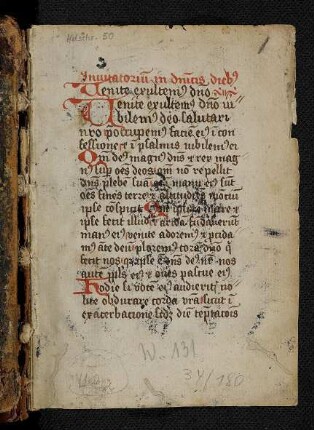 Hs. 50
1
Inuitatoriū in dnicis dieb9
Uenite exultem9 dno
Uenite exultem9 dno iu
bilem9 deo salutari
nro p̄ocupem9 faciē ei9 ī con
fessione et ī psalmis iubilem9 ei
Qm̄ de9 magn9 dns et rex magn9
sup oēs deos qm̄ nō repellit
dns plebē suā manu ei9 sūt
oēs fines terre et altitudīes mōtiū
ipse cōspicit Qm̄ ipsius ē mare et
ipse fecit illud et aridā fūdauerūt
man9 ei9 venite adorem9 et p̄cida
m9 āte deū plorem9 corā dno q̄
fecit nos q̄ ipse ē dns de9 nr̄ nos
autē ppls ei9 et oues pascue ei9
Hodie si vocē ei9 audierit9 no
lite obdurare corda vrā sicut ī
exacerbacione scdȝ diem temptacōis
W. 131
34/180